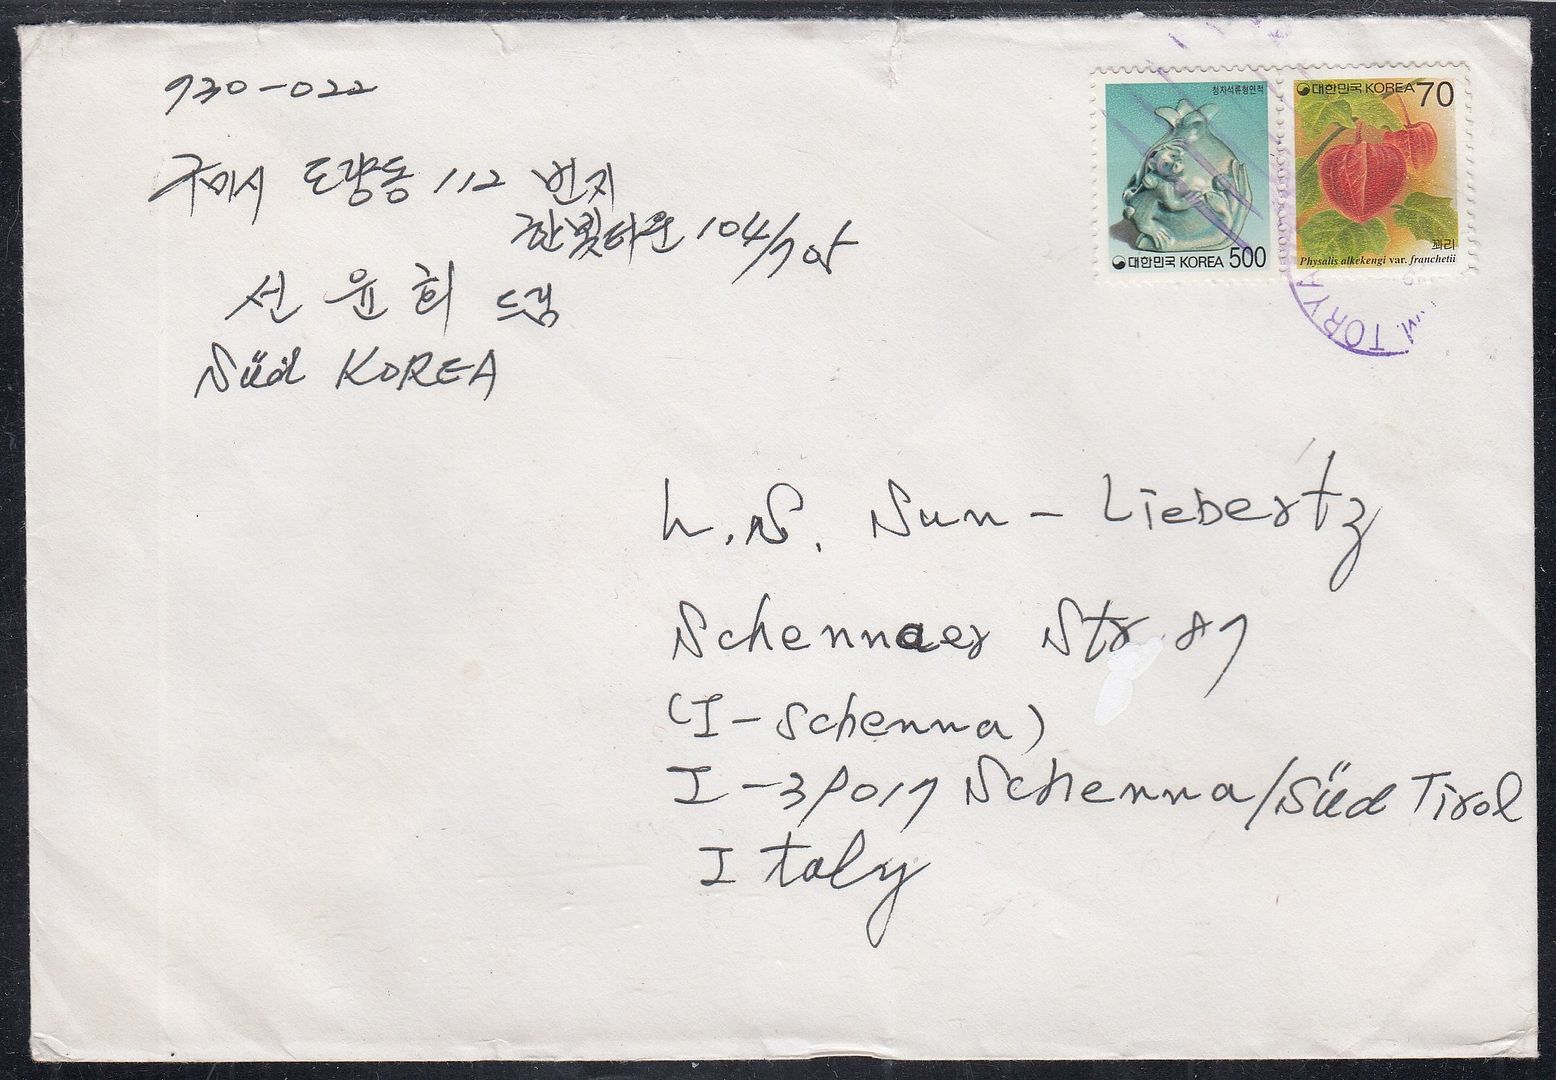 930-022
구미시 도량동 112 번지
한빛타운 104/705
선 윤 희 드림
Süd KOREA
청자석류형연적
대한민국 KOREA 500
대한민국 KOREA 70
꽈리
Physalis alkekengi var. franchetii
TORYA
h.S. Sun - Liebertz
Schennaer Str 87
(I-Schenna)
I-39017 Schenna/Süd Tirol
Italy